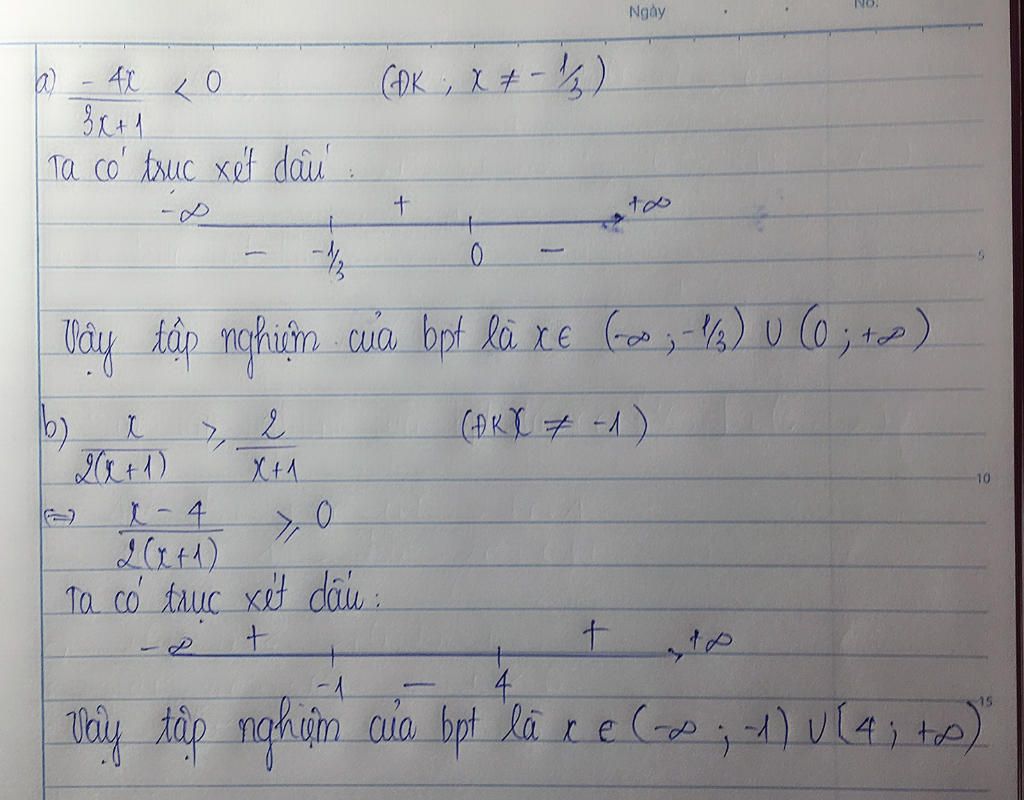 Ngày No.
a) -4x/(3x+1) < 0 (ĐK ; x ≠ -1/3)
Ta có trục xét dấu :
-∞ + +∞
- -1/3 0 -
5
Vậy tập nghiệm của bpt là x ∈ (-∞ ; -1/3) ∪ (0 ; +∞)
b) x/(2(x+1)) ≥ 2/(x+1) (ĐK x ≠ -1)
10
⇔ (x-4)/(2(x+1)) ≥ 0
Ta có trục xét dấu :
-∞ + + +∞
-1 - 4
15
Vậy tập nghiệm của bpt là x ∈ (-∞ ; -1) ∪ [4 ; +∞)